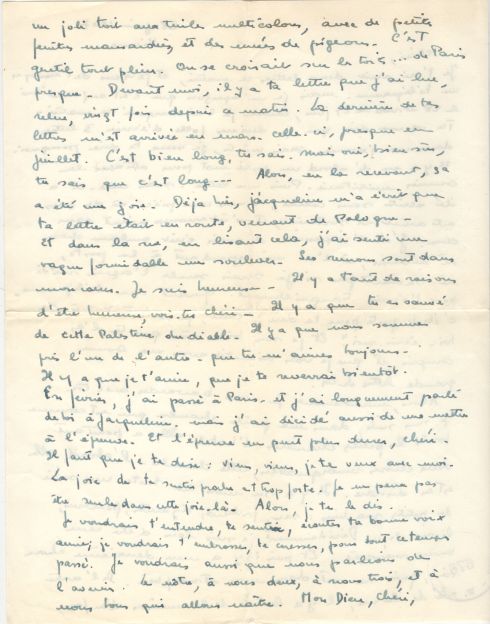 un joli toit aux tuiles multicolores, avec de petites
fenêtres mansardées, et des nuées de pigeons. C'est
gentil tout plein. On se croirait sur les toits... de Paris
presque. Devant moi, il y a ta lettre que j'ai lue,
relue, vingt fois depuis ce matin. La dernière de tes
lettres m'est arrivée en mars. celle-ci, presque en
juillet. C'est bien long, tu sais. mais oui, bien sûr,
tu sais que c'est long --- Alors, en la recevant, ça
a été une joie. Déjà hier, jacqueline m'a écrit que
ta lettre était en route, venant de Pologne -
Et dans la rue, en lisant cela, j'ai senti une
vague formidable me soulever. Les remous sont dans
mon cœur. Je suis heureuse - Il y a tant de raisons
d'être heureuse, vois-tu chéri - Il y a que tu es sauvé
de cette Palestine du diable. Il y a que nous sommes
près l'un de l'autre. que tu m'aimes toujours.
Il y a que je t'aime, que je te reverrai bientôt.
En février, j'ai passé à Paris. et j'ai longuement parlé
de toi à Jacqueline. mais j'ai décidé aussi de me mettre
à l'épreuve. Et l'épreuve ne peut plus durer, chéri.
Il faut que je te dise : viens, viens, je te veux avec moi.
La joie de te sentir proche est trop forte. Je ne peux pas
être seule dans cette joie-là. Alors, je te le dis.
Je voudrais t'entendre, te sentir, écouter ta bonne voix
amie; je voudrais t'embrasser, te caresser, pour tout ce temps
passé. Je voudrais aussi que nous parlions de
l'avenir. Le nôtre, à nous deux, à nous trois, et à
nous tous qui allons naître. Mon Dieu, chéri,